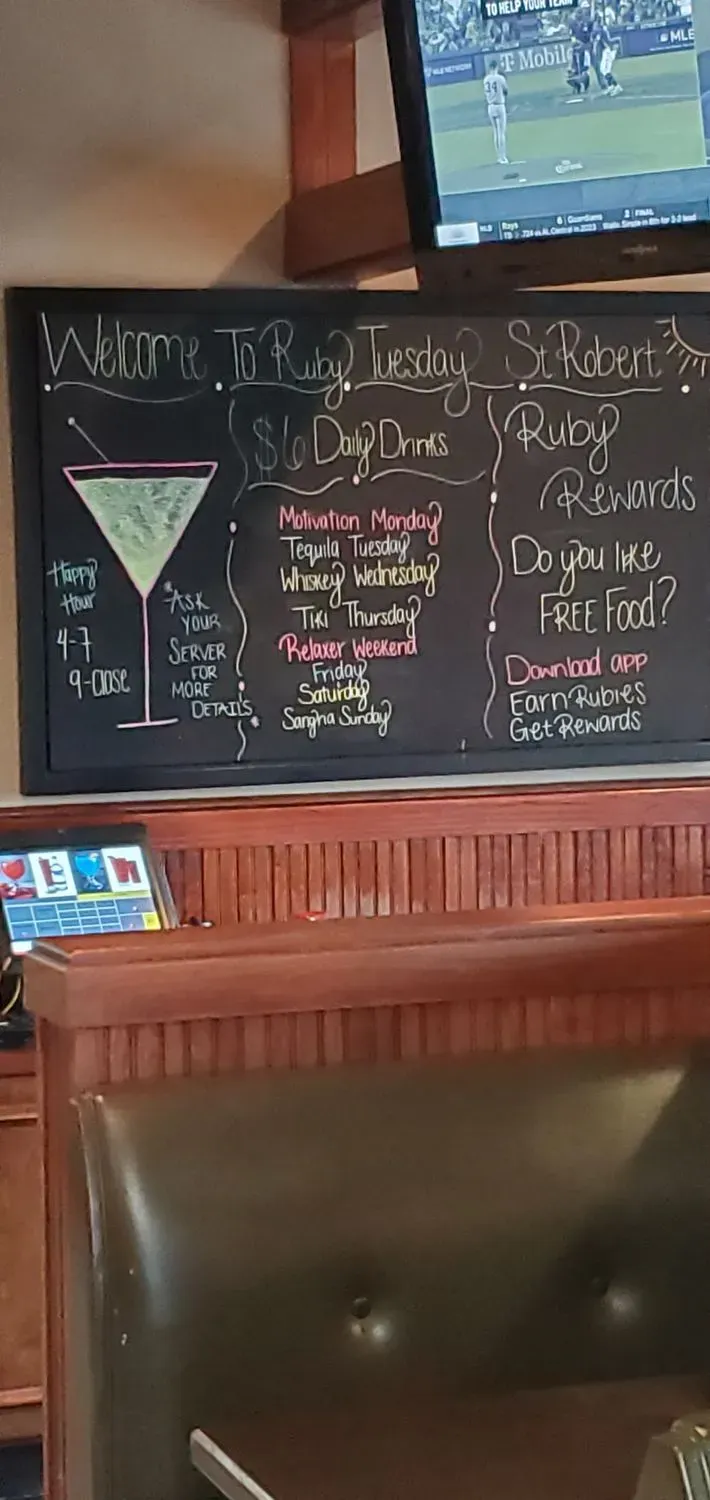 TO HELP YOUR TEAM
MLB NETWORK
T Mobile
MLB
34
Corona
MLB
Rays 6 Guardians 2 FINAL
.724 vs AL Central in 2023
Welcome To Ruby Tuesday St Robert
$6 Daily Drinks
Motivation Monday
Tequila Tuesday
Whiskey Wednesday
Tiki Thursday
Relaxer Weekend
Friday
Saturday
Sangria Sunday
Happy
Hour
4-7
9-close
*ASK
YOUR
SERVER
FOR
MORE
DETAILS*
Ruby
Rewards
Do you like
FREE Food?
Download app
Earn Rubies
Get Rewards